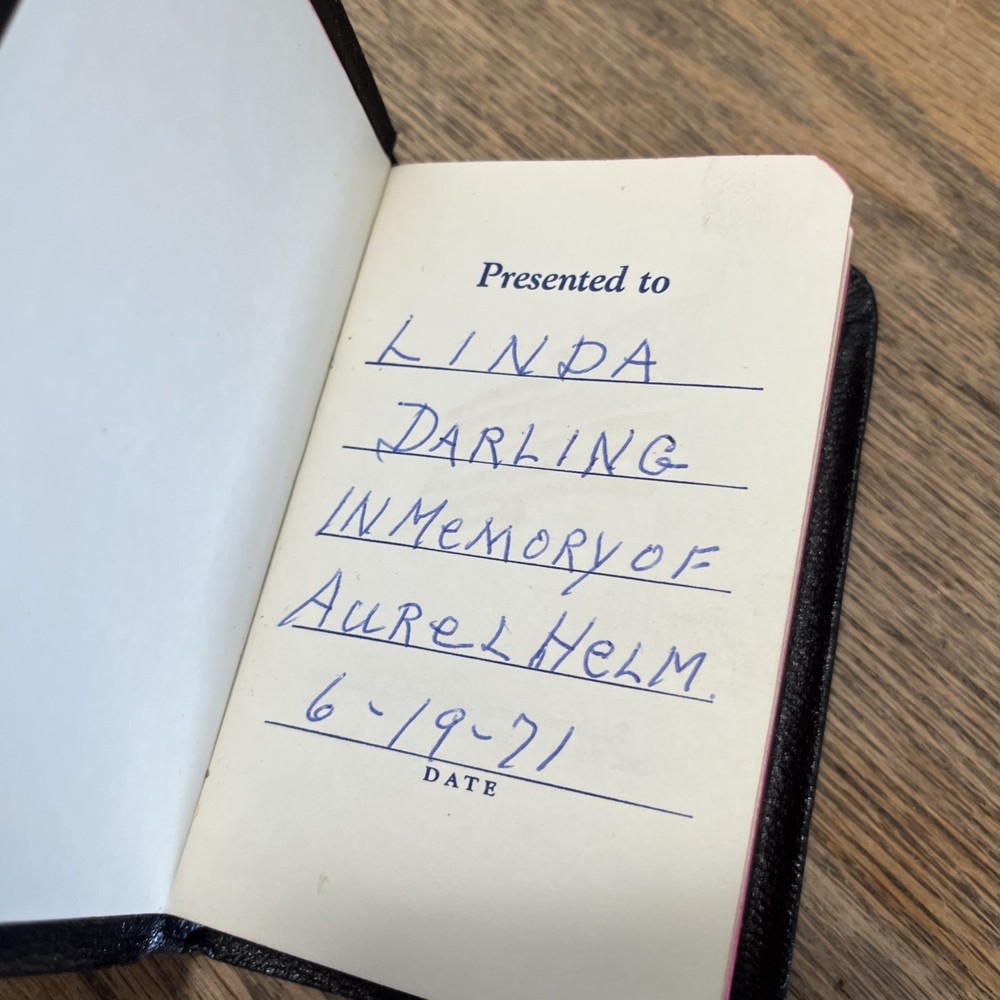 Presented to
LINDA
DARLING
IN MeMORY OF
AuReL HeLM.
6-19-71
DATE